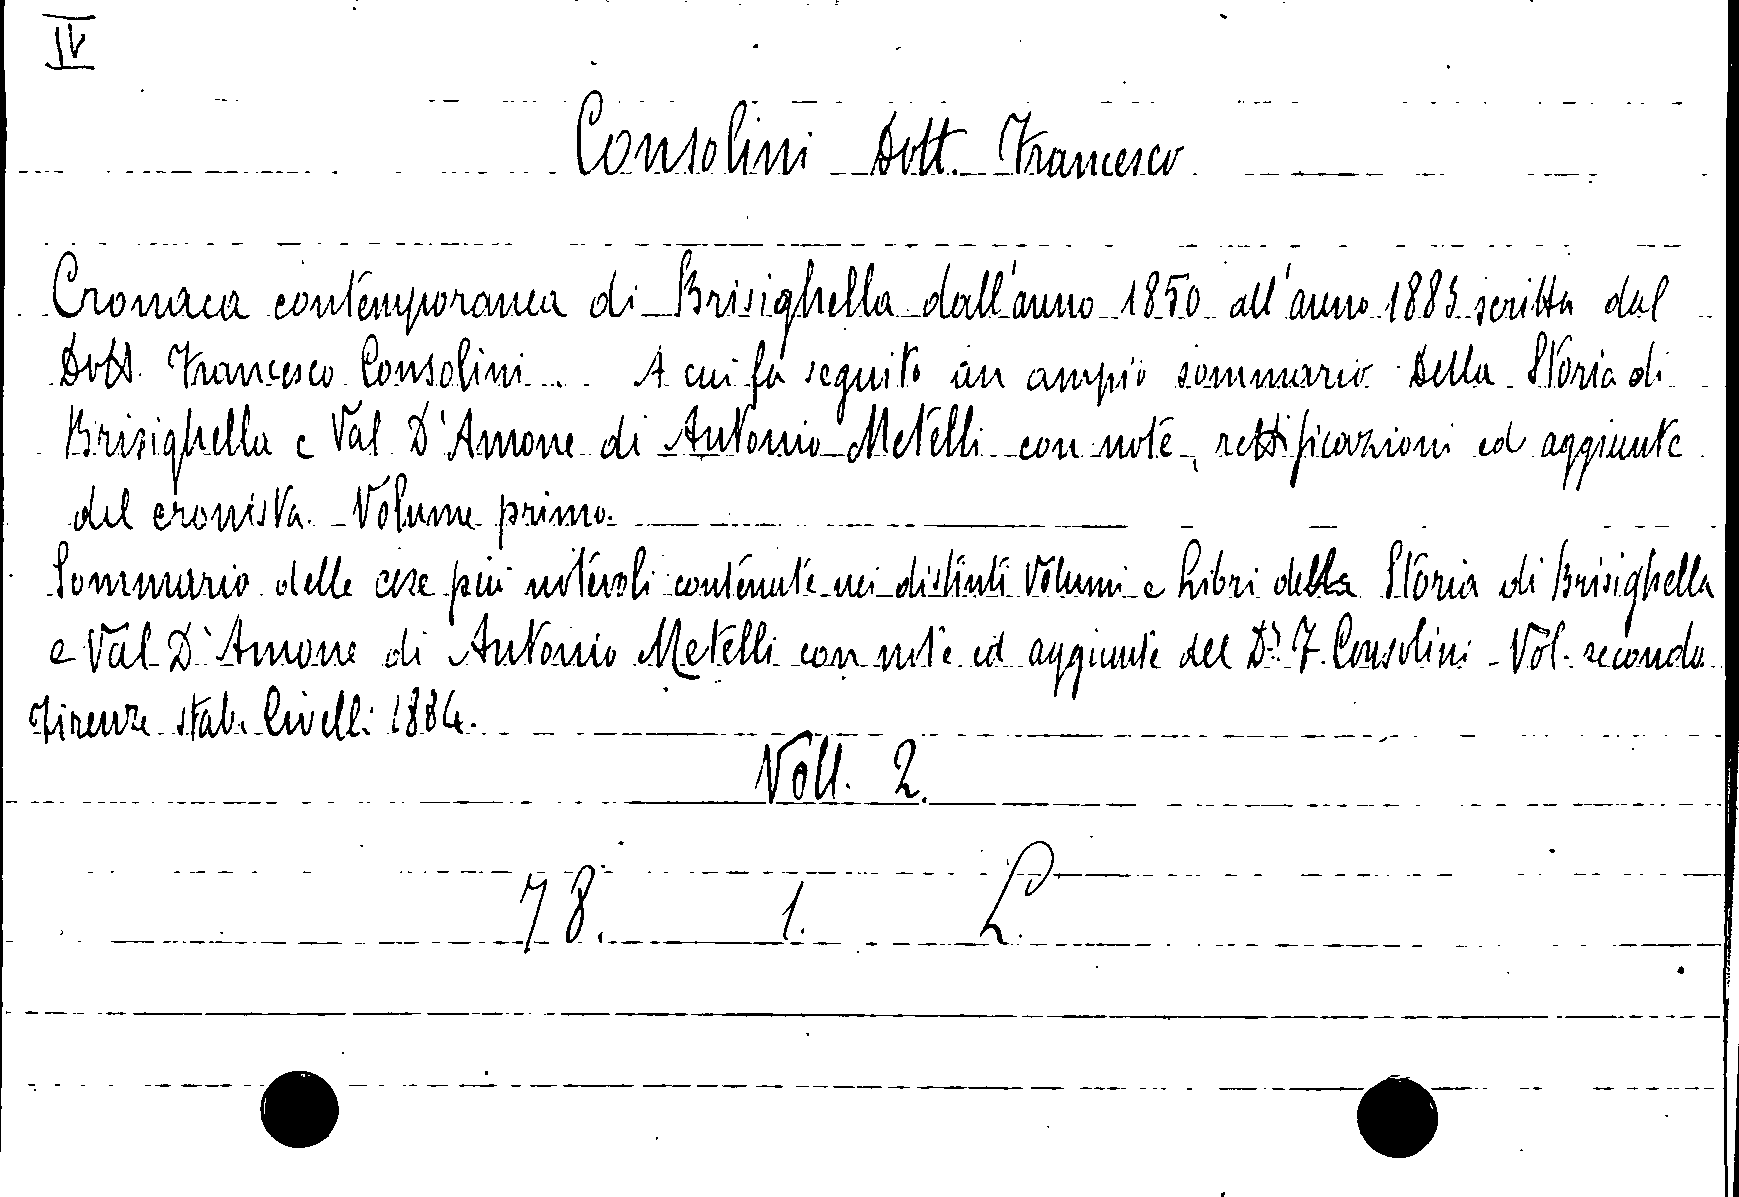 IV
Consolini Dott. Francesco
Cronaca contemporanea di Brisighella dall'anno 1850 all'anno 1883 scritta dal
Dott. Francesco Consolini... A cui fa seguito un ampio sommario Della Storia di
Brisighella e Val D'Amone di Antonio Metelli con note, rettificazioni ed aggiunte
del cronista. Volume primo.
Sommario delle cose più notevoli contenute nei distinti Volumi e Libri della Storia di Brisighella
e Val D'Amone di Antonio Metelli con note ed aggiunte del Dr. F. Consolini - Vol. secondo
Firenze stab. Civelli 1884.
Voll. 2.
78. 1. L.